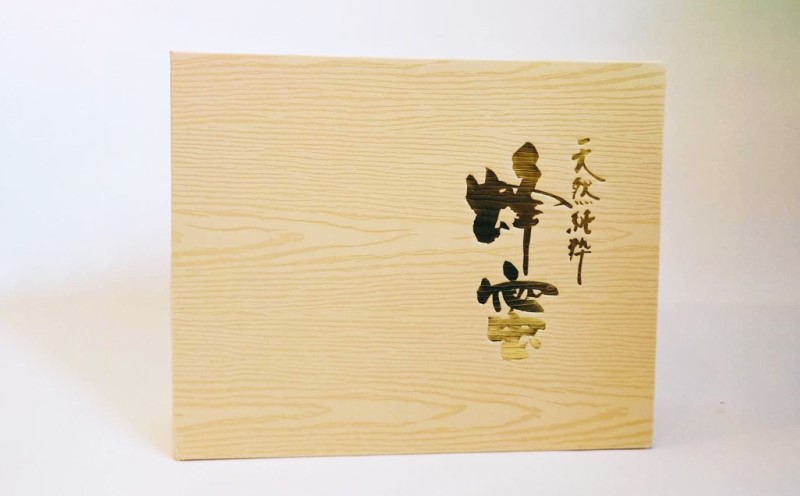 天然純粋
蜂蜜